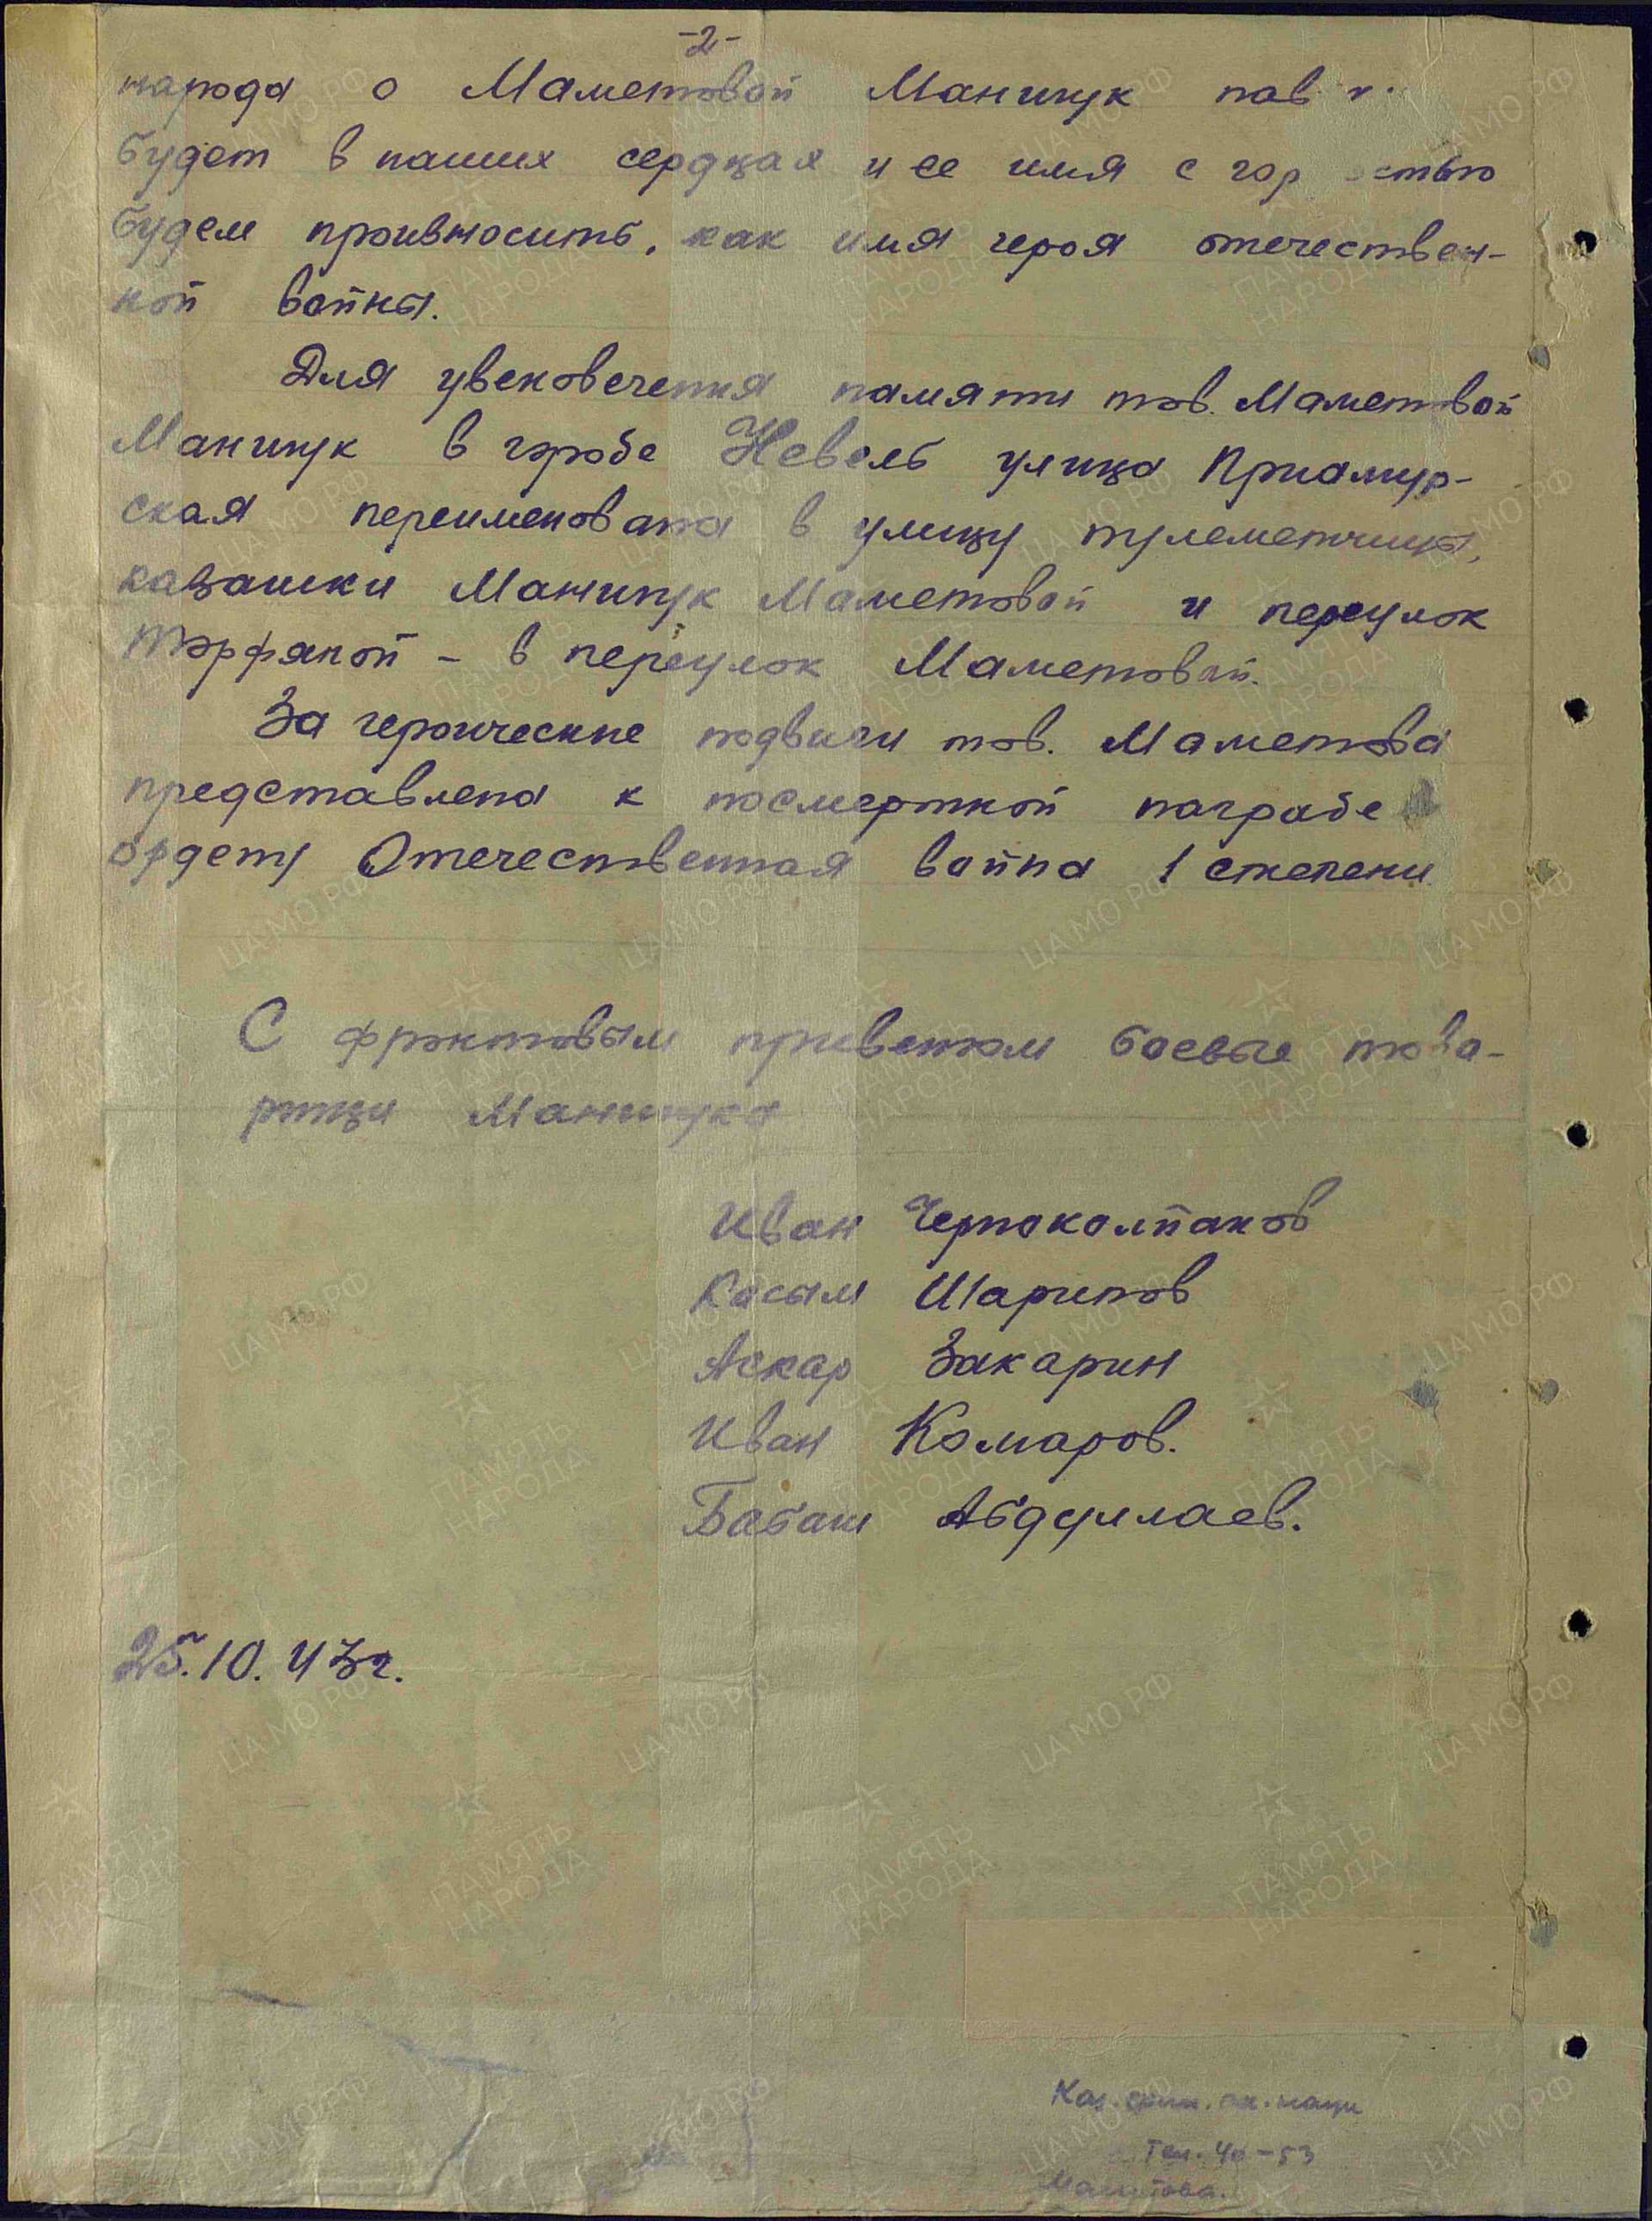 -2-
народа о Маметовой Маншук нав
будет в наших сердцах и ее имя с гор стью
будем произносить, как имя героя отечествен-
ной войны.
Для увековечения памяти тов. Маметовой
Маншук в городе Невель улица Приамур-
ская переименована в улицу пулеметчицы,
казашки Маншук Маметовой и переулок
Торфяной - в переулок Маметовой.
За героические подвиги тов. Маметова
представлена к посмертной награде
ордену Отечественная война 1 степени
С фронтовым приветом боевые това-
рищи Маншука
Иван Черноколпаков
Касым Шарипов
Аскар Закарин
Иван Комаров.
Бабаш Абдуллаев.
25.10.43г.
Тел. 40-53
Маметова.
ЦА МО РФ
ПАМЯТЬ
НАРОДА